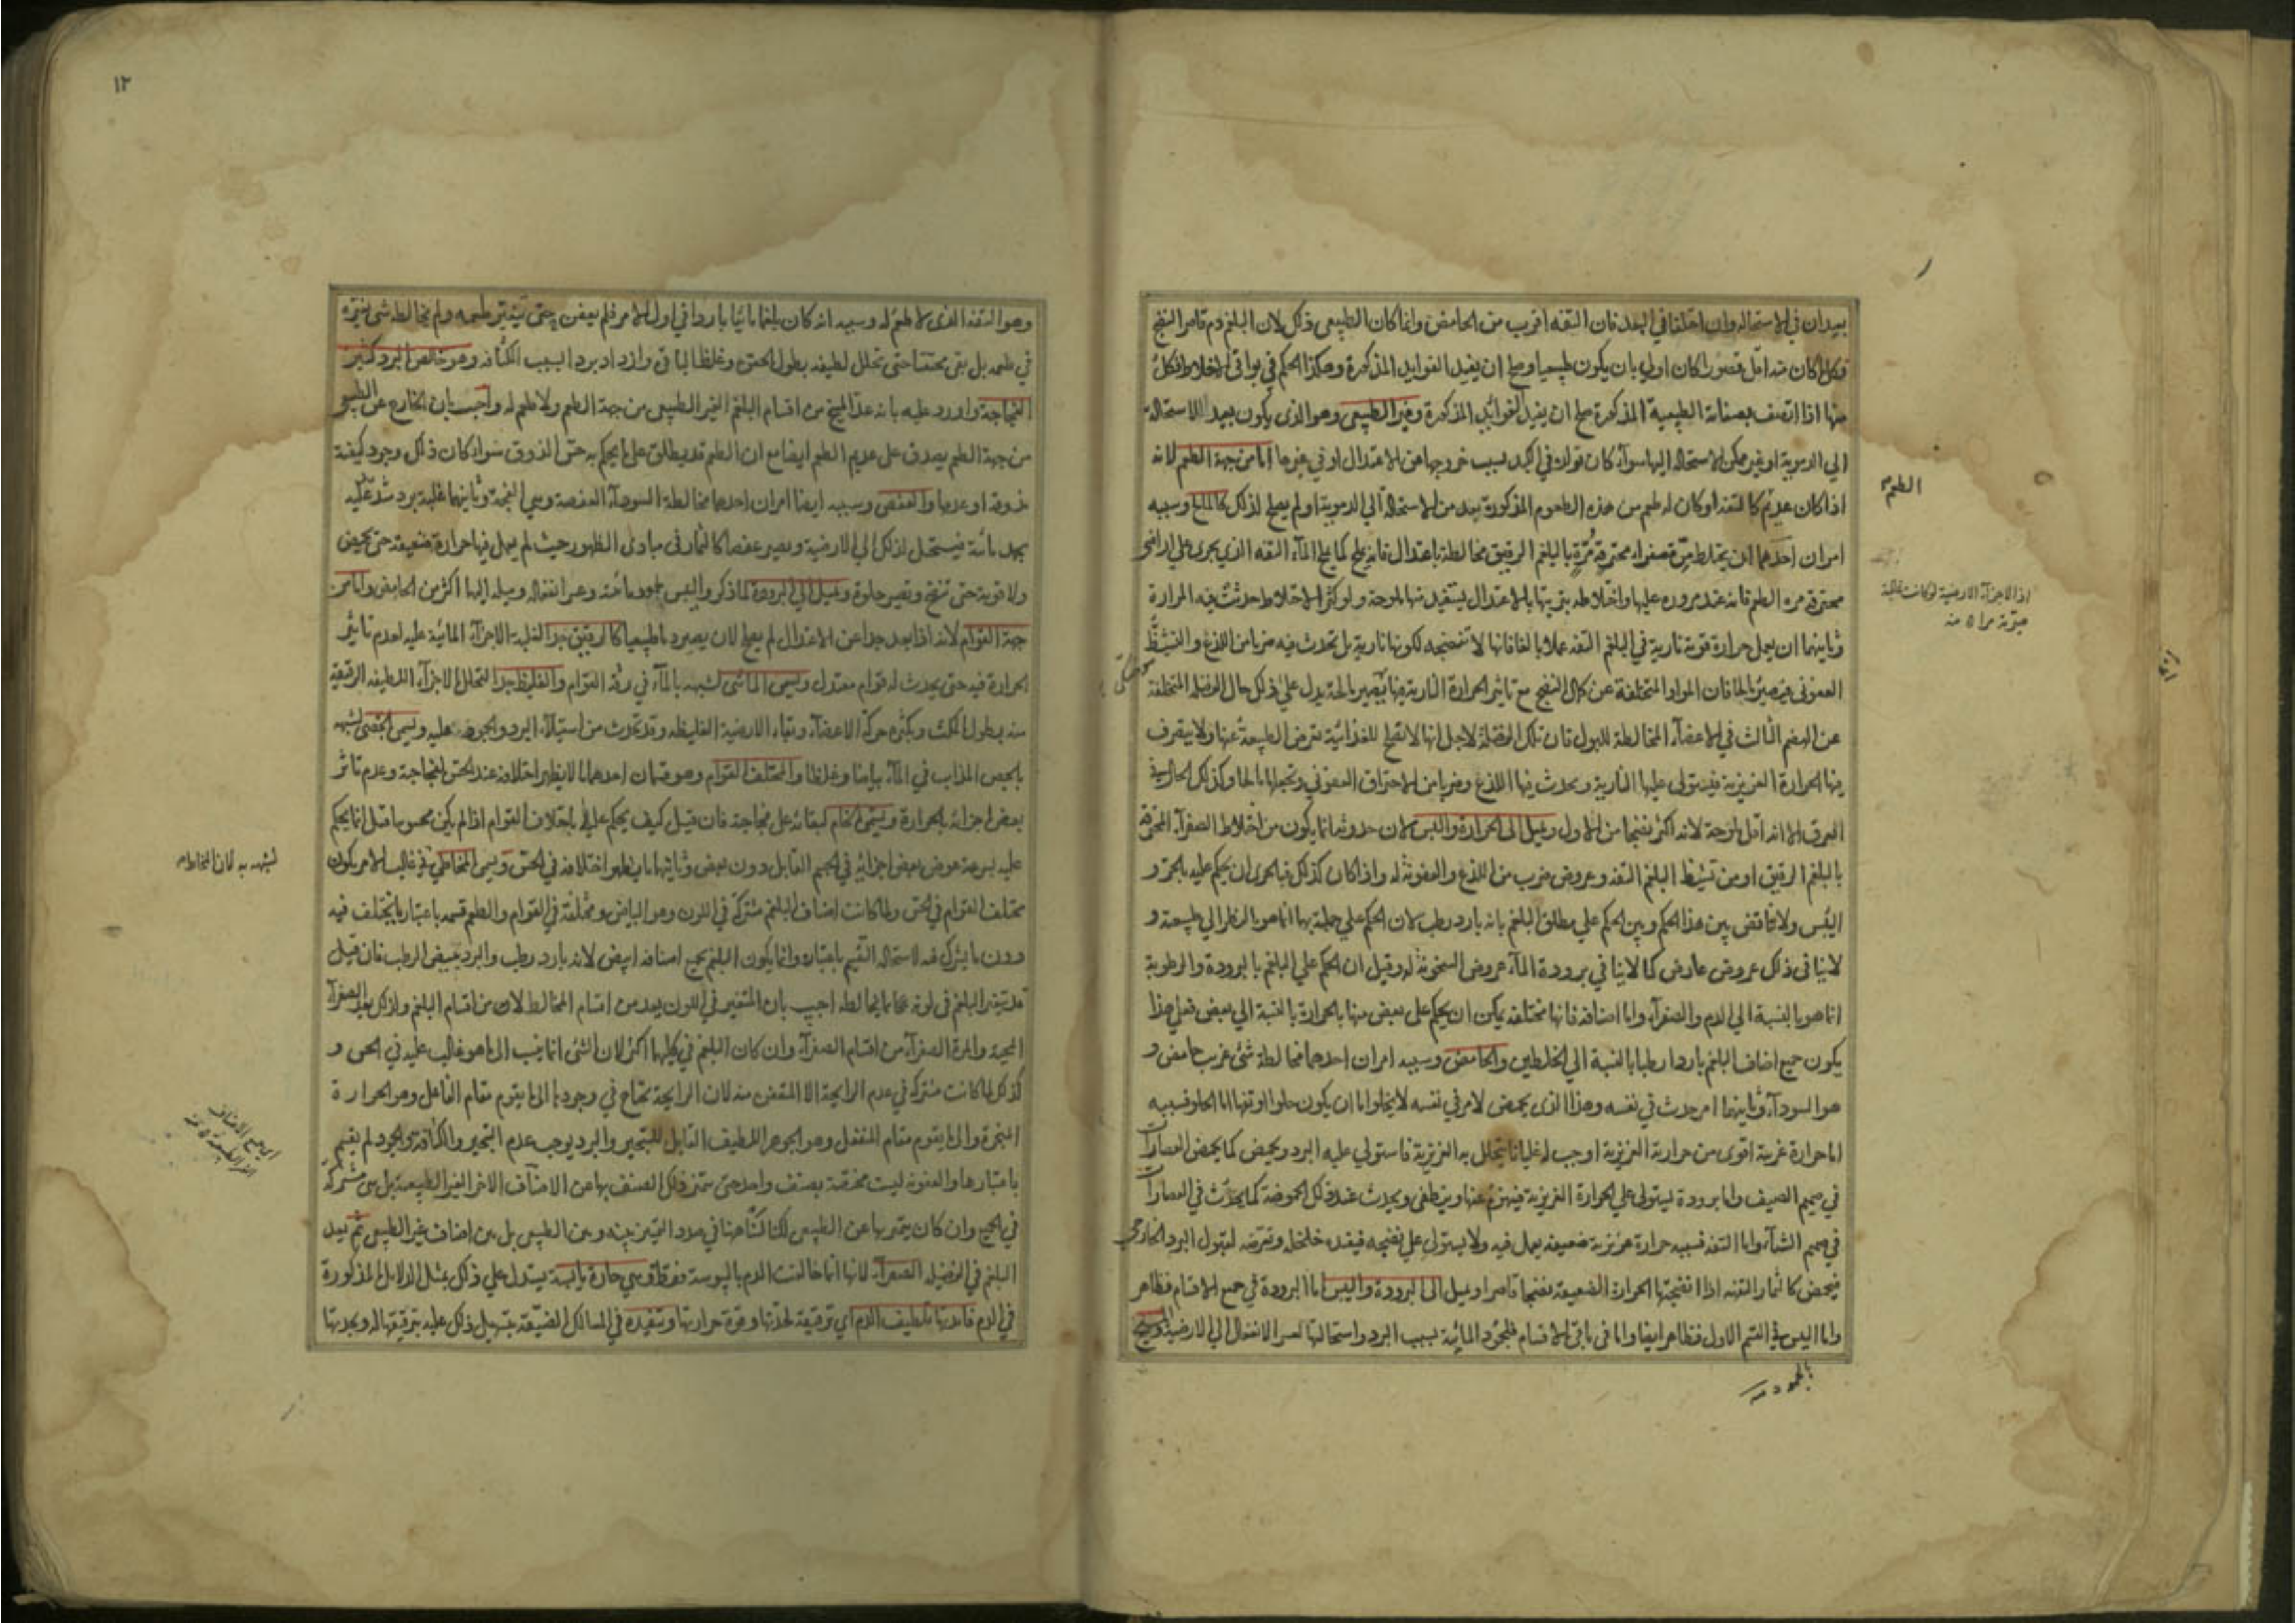 بعيدان في الاستحالة وان اختلفا في البعد فان التفه اقرب من الحامض وانما كان الطبيعي ذلك لان البلغم دم قاصر النضج
فكل ما كان منه اقل قصورا كان اولي بان يكون طبيعيا وصلح ان يفيد الفوايد المذكورة وهكذا الحكم في بواقي الاخلاط فكل
منها اذا اتصف بصفاته الطبيعية المذكورة صلح ان يفيد الفوائد المذكورة وغير الطبيعي وهو الذي يكون بعيد الاستحالة
الي الدموية او غير ممكن الاستحالة اليها سوآء كان تولده في الكبد بسبب خروجها عن الاعتدال او في غيرها اما من جهة الطعم لانه
اذا كان عديم كالتفه او كان له طعم من هذه الطعوم المذكورة بعد من الاستحالة الي الدموية او لم يصلح لذلك كالمالح وسببه
امران احدهما ان يختلط مرة صفراء محترقة مُرّة بالبلغم الرقيق مخالطة باعتدال فانه يملح كما يملح المآء التفه الذي يجري علي اراضي
محترقة مرة الطعم فانه عند مروره عليها واختلاطه بتربتها بالاعتدال يستفيد منها ملوحة ولو كثر الاختلاط حدثت فيه المرارة
وثانيهما ان يعمل حرارة قوية نارية في البلغم التفه عملا بالغا فانها لا تنضجه لكونها نارية بل يحدث فيه ضربا من اللذع والتشيّط
العفوني فيصير مالحا فان المواد المتخلفة عن كمال النضج مع تاثير الحرارة النارية فيها تصير مالحة يدل علي ذلك حال الفضلة المتخلفة
عن الهضم الثالث في الاعضآء المخالطة للبول فان تلك الفضلة لاجل انها لا تصلح للغذائية تعرض الطبيعة عنها ولا يتصرف
فيها الحرارة الغريزية فيستولي عليها النارية ويحدث فيها اللذع وضربا من الاحتراق العفوني وتجعلها مالحا وكذلك الحال في
العرق الا انه اقل ملوحة لانه اكثر نضجا من الاول ويميل الي الحرارة واليبس لان حدوثه انما يكون من اختلاط الصفرآء المحترقة
بالبلغم الرقيق او من تشيط البلغم التفه وعروض ضرب من اللذع والعفونة له واذا كان كذلك فبالحري ان يحكم عليه بالحر و
اليُبس ولا تناقض بين هذا الحكم وبين الحكم علي مطلق البلغم بانه بارد رطب لان الحكم علي جملته بها انما هو بالنظر الي طبيعته و
لا ينافي ذلك عروض عارض كما لا ينافي برودة المآء عروض السخونة له وقيل ان الحكم علي البلغم بالبرودة والرطوبة
انما هو بالنسبة الي الدم والصفرآء واما اصنافه فانها مختلفة يمكن ان يحكم علي بعض منها بالحرارة بالنسبة الي بعض فعلي هذا
يكون جميع اصناف البلغم باردا رطبا بالنسبة الي الخلطين والحامض وسببه امران احدهما مخالطة شئ غريب حامض و
هو السودآء وثانيهما امر حدث في نفسه وهذا الذي يحمض لامر في نفسه لا يخلوا اما ان يكون حلوا او تفها اما الحلو فسببه
اما حرارة غريبة اقوي من حرارته الغريزية اوجب له غليانا يتحلل به الغريزية فاستولي عليه البرد ويحمض كما يحمض العصارات
في صميم الصيف واما برودة ليستولي علي الحرارة الغريزية فيهزم عنها وينطفي ويحدث عند ذلك الحموضة كما يحدث في العصارات
في صميم الشتآء واما التفه فسببه حرارة غريزية ضعيفة يعمل فيه ولا يستولي علي نضجه فيفيده خلخلة وتعرضه لقبول البرد الخارجي
فيحمض كالثمار التفه اذا انضجتها الحرارة الضعيفة نضجا قاصرا ويميل الي البرودة واليبس اما البرودة في جميع الاقسام فظاهر
واما اليبس في القسم الاول فظاهر ايضا واما في باقي الاقسام فلجمود المائية بسبب البرد واستحالتها لعسر الانفعال الي الارضية والمسيخ
الطعم
اذ الاجزآء الارضية لو كانت غالبة
بالجمود منه
١٢
وهو التفه الذي لا طعم له وسببه انه كان بلغما مائيا باردا في اول الامر فلم يعفن حتي يتغير طعمه ولم يخالطه شئ يغيره
في طعمه بل بقي محتقنا حتي تحلل لطيفه بطول الحقن وغلظ الباقي وازداد برده بسبب الكثافة وهو خالص البرد كثير
الفجاجة واورد عليه بانه عد المسيخ من اقسام البلغم الغير الطبيعي من جهة الطعم ولا طعم له واجيب بان الخارج عن الطبيعي
من جهة الطعم يصدق علي عديم الطعم ايضا مع ان الطعم قد يطلق علي ما يحكم به حس الذوق سوآء كان ذلك وجود كيفية
ذوقه او عدمها والعفص وسببه ايضا امران احدهما مخالطة السودآء العفصة وهي الفجة وثانيهما غلبة برد شديد عليه
يجمد مائيته فيستحيل لذلك الي الارضية ويصير عفصا كالثمار في مبادي الظهور حيث لم يعمل فيها حرارة ضعيفة حتي يحمض
ولا قوية حتي تنضج وتصير حلوة ويميل الي البرودة لما ذكر واليبس لجمود مائيته وعسر انفعاله وميله اليها اكثر من الحامض واما من
جهة القوام لانه اذا بعد جدا عن الاعتدال لم يصلح لان يصير دما طبيعيا كالرقيق جدا لغلبة الاجزآء المائية عليه لعدم تاثير
الحرارة فيه حتي يحدث له قوام معتدل ويسمي المائي لشبهه بالمآء في رقة القوام والغليظ جدا لتحلل الاجزآء اللطيفة الرقيقة
منه بطول المكث وبكثرة حركة الاعضآء وبقاء الارضية الغليظة وقد تحدث من استيلآء البرد والجمود عليه ويسمي الجصي لشبهه
بالجص المذاب في المآء بياضا وغلظا والمختلف القوام وهو قسمان احدهما لا يظهر اختلافه عند الحس لفجاجته وعدم تاثر
بعض اجزائه بالحرارة ويسمي الخام لبقائه علي فجاجته فان قيل كيف يحكم عليه باختلاف القوام اذا لم يكن محسوسا قيل انما يحكم
عليه بسرعة عوض بعض اجزائه في الجسم القابل دون بعض وثانيهما ما يظهر اختلافه في الحس ويسمي المخاطي في غالب الامر يكون
مختلف القوام في الحس ولما كانت اصناف البلغم مشتركة في اللون وهو البياض ومختلفة في القوام والطعم قسمه باعتبار ما يختلف فيه
دون ما يشترك فيه لاستحالة التقسيم باعتباره وانما يكون البلغم بجميع اصنافه ابيض لانه بارد رطب والبرد يبيض الرطب فان قيل
قد يتغير البلغم في لونه عما يخالطه اجيب بان المتغير في اللون يعد من اقسام المخالط لا من اقسام البلغم ولذلك يعد الصفرآء
المحية والمرة الصفرآء من اقسام الصفرآء وان كان البلغم في كليهما اكثر لان الشئ انما ينسب الي ما هو غالب عليه في الحس و
كذلك لما كانت مشتركة في عدم الرايحة الا المتعفن منه لان الرايحة تحتاج في وجودها الي ما يقوم مقام الفاعل وهو الحرارة
المبخرة والي ما يقوم مقام المنفعل وهو الجوهر اللطيف القابل للتبخير والبرد يوجب عدم التبخير والكثافة والجمود لم يقسم
باعتبارها والعفونة ليست مختصة بصنف واحد حتي يتميز ذلك الصنف بها عن الاصناف الاخر الغير الطبيعية بل هي مشتركة
في الجميع وان كان يتميز بها عن الطبيعي لكنا لسنا هنا في صدد التمييز بينه وبين الطبيعي بل بين اصناف غير الطبيعي ثم بعد
البلغم في الفضيلة الصفرآء لانها انما خالفت الدم باليبوسة فقط وهي حارة يابسة يستدل علي ذلك بمثل الدلائل المذكورة
في الدم فائدتها تلطيف الدم اي ترقيقه لحدتها وقوة حرارتها وتنفيذه في المسالك الضيقة بتسهيل ذلك عليه بترقيقها له وبحدتها
لشبهه به